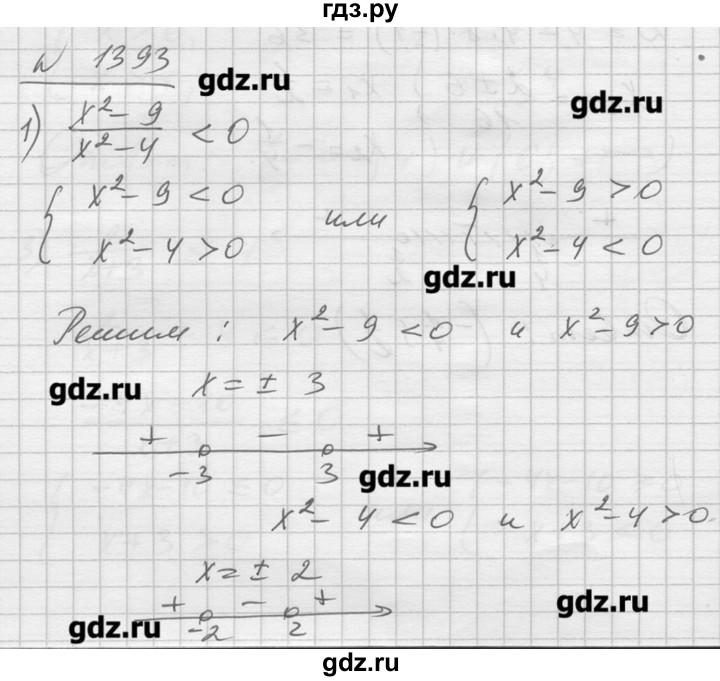 гдз.ру
N 1393
gdz.ru
gdz.ru
1) (x² - 9)/(x² - 4) < 0
{ x² - 9 < 0
x² - 4 > 0
или
{ x² - 9 > 0
x² - 4 < 0
gdz.ru
Решим : x² - 9 < 0 и x² - 9 > 0
gdz.ru
x = ± 3
+ - +
-3 3
gdz.ru
x² - 4 < 0 и x² - 4 > 0
x = ± 2
gdz.ru
+ - +
-2 2
gdz.ru
gdz.ru